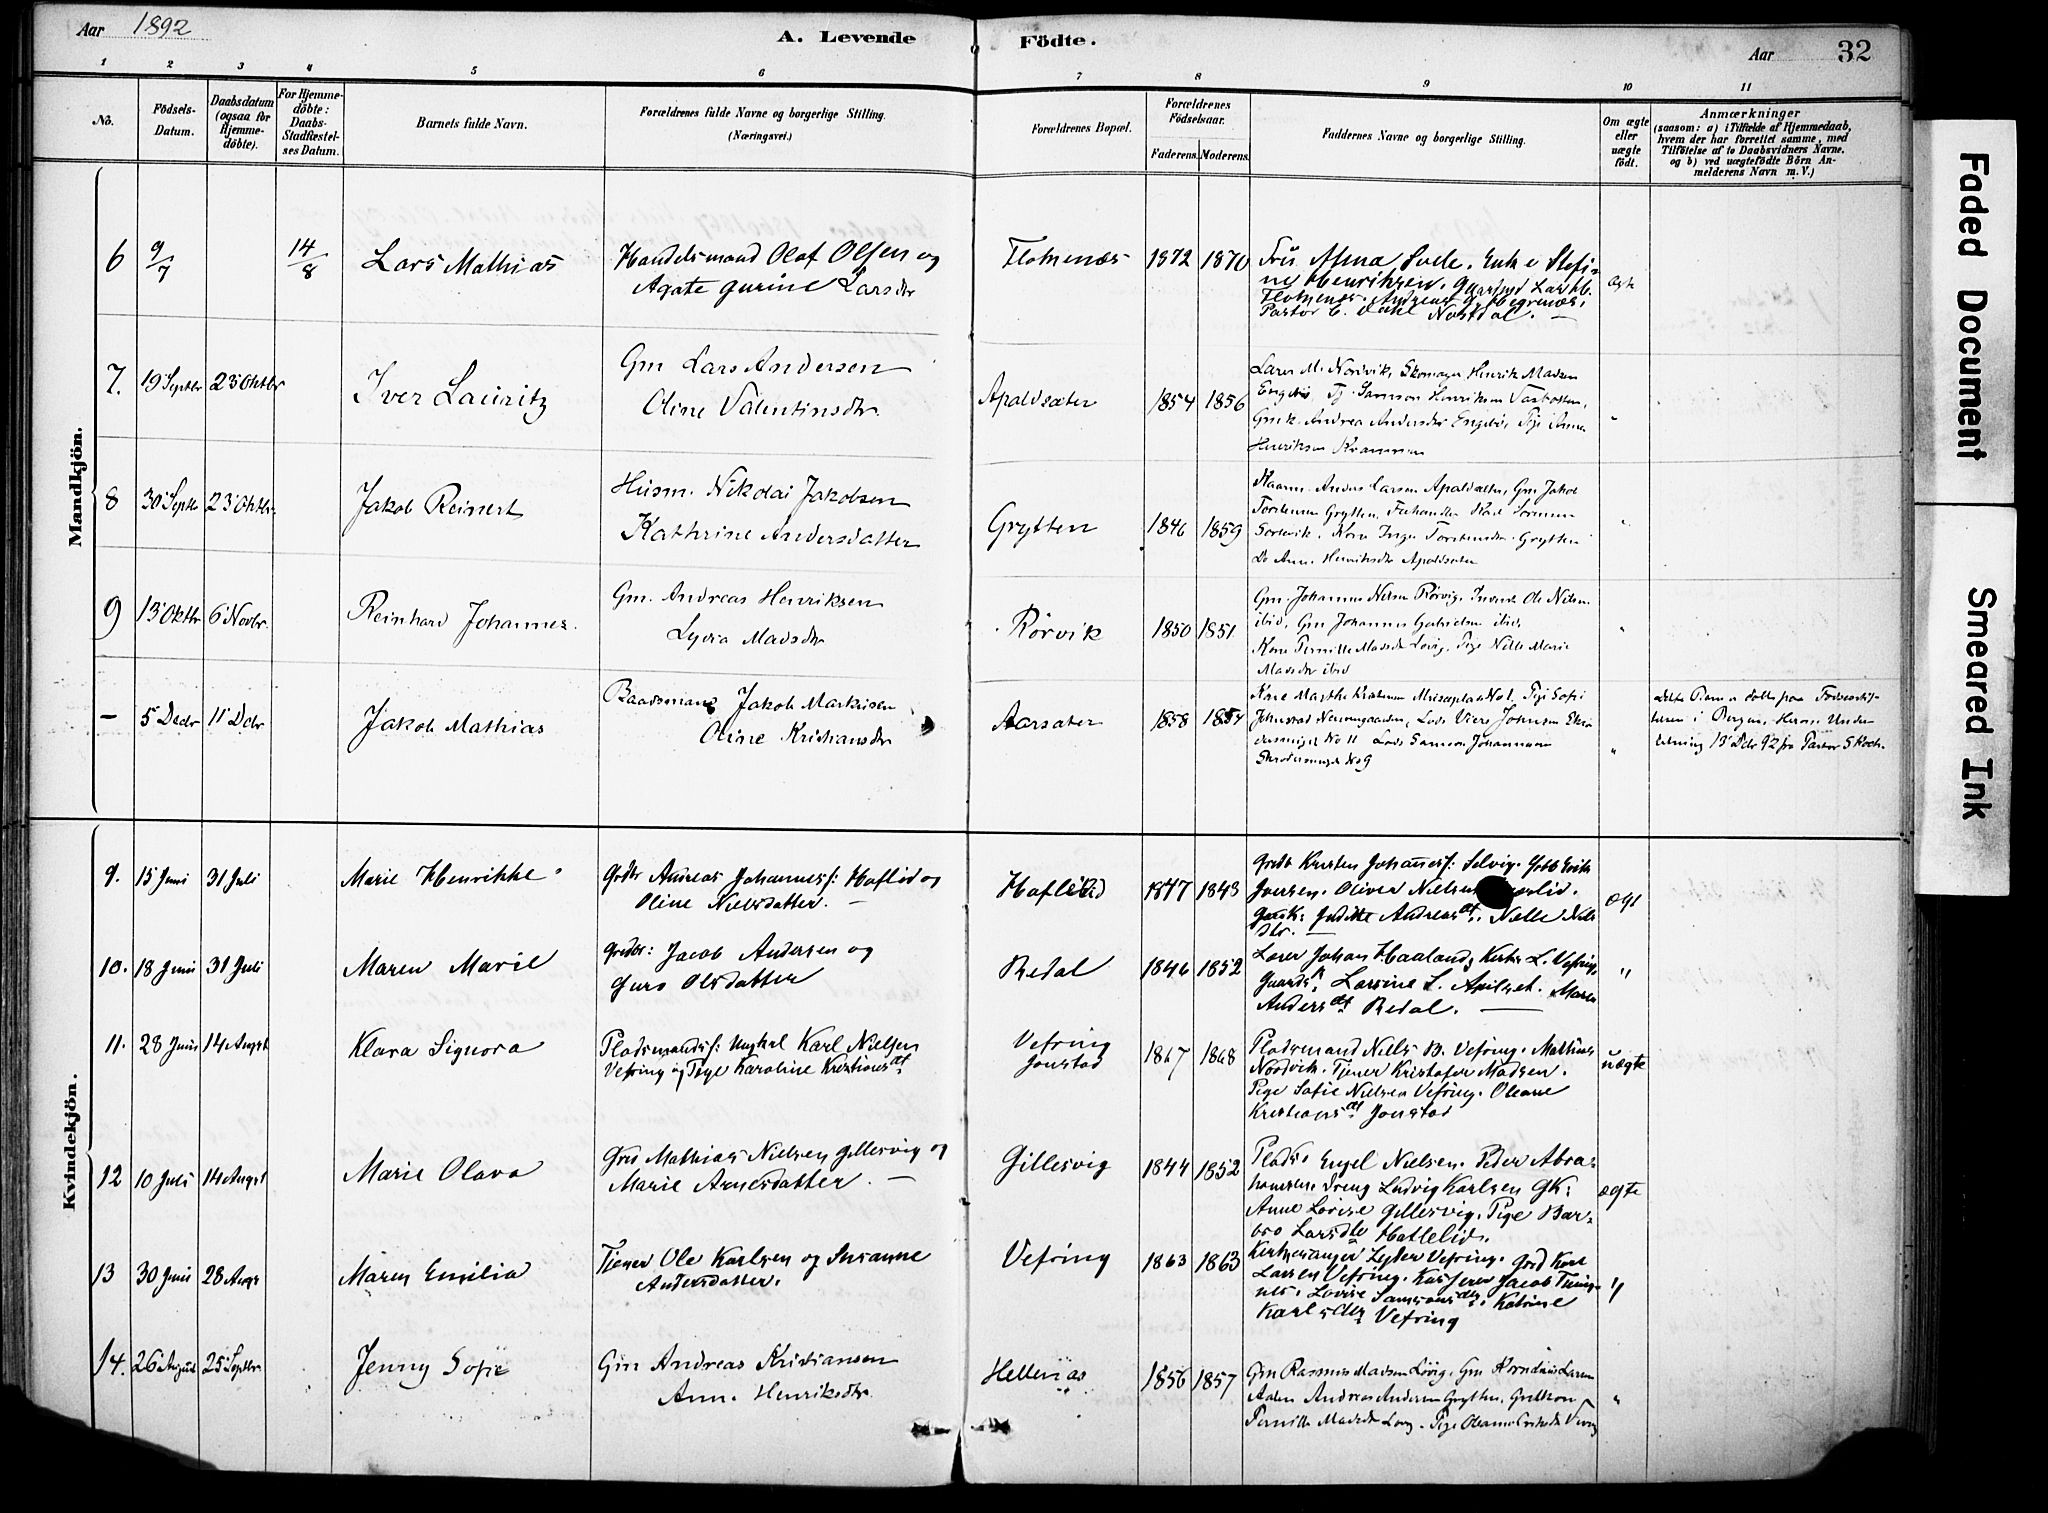 Aar 1892
A. Levende Födte.
Aar 32
1 2 3 4 5 6 7 8 9 10 11
No.
Födsels-Datum.
Daabsdatum (ogsaa for Hjemme-döbte).
For Hjemme-döbte: Daabs-Stadfæstel-ses Datum.
Barnets fulde Navn.
Forældrenes fulde Navne og borgerlige Stilling.
(Næringsvei.)
Forældrenes Bopæl.
Forældrenes Födselsaar.
Faderens. Moderens.
Faddernes Navne og borgerlige Stilling.
Om ægte eller uægte födt.
Anmærkninger
(saasom: a) i Tilfælde af Hjemmedaab,
hvem der har forrettet samme, med
Tilföielse af to Daabsvidners Navne.
og b) ved uægtefödte Börn An-
melderens Navn m. V.)
Mandkjön.
6 9/7 14/8 Lars Mathias
Handelsmand Olaf Olsen og
Agate Gurine Larsdtr
Flokenæs 1872 1870
Pastor C. Dahl Nordal.
ægte
7. 19 Septbr 23 Oktbr Iver Lauritz
Gm Lars Andersen
Oline Valentinsdtr.
Apaldsæter 1854 1856
Lærer M. Nordvik, Skomager Henrik Madsen
Gmk. Andrea Andersdtr Engebö, Pige Anne
"
8 30 Septb 23 Oktbr. Jakob Reinert
Husm. Nikolai Jakobsen
Kathrine Andersdatter
Grytten 1846 1859
Anders Larsen Apaldsæter, Gm Jakob
Torstensen Grytten,
Kone Inger Torstensdtr Grytten
Do Ann. Henriksdtr Apaldsæter
"
9 13 Oktbr 6 Novbr. Reinhard Johannes.
Gm. Andreas Henriksen
Lydia Madsdtr
Rörvik 1850 1851
Gm. Johannes Nilsen Rörvig, Ole Nilsen
ibid, Gm Johannes Gabrielsen ibid,
Kone Pernille Madsdtr Lövig, Pige Nille Marie
Madsdtr ibid
"
– 5 Decbr 11 Dcbr Jakob Mathias
Baadsmand Jakob Markusen
Oline Kristiansdtr
Aarsæter 1858 1854
No 11 Lods Samson Johannesen
No 9
"
dette Barn er döbt paa Födselsstif-
telsen i Bergen, iflg. Under-
retning 13 Dcbr 92 fra Pastor S Koch.
Kvindekjön.
9. 15 Juni 31 Juli Marie Henrikke
Grdbr Andreas Johannesf: Haflid og
Oline Nielsdatter. –
Haflid 1847 1843
Grdb Kristen Johannesf: Solvig. Grdb Erik
Joensen. Oliver Nielsen
Gaardk: Judithe Andreasdt. Nille Niels
dtr. –
ægt
10. 18 Juni 31 Juli Maren Marie
Grdbr: Jacob Andersen og
Guro Olsdatter
Redal 1846 1852
Lærer Johan Haaland, Kirkes. L. Vefring,
Gaardk. Larsine L. Apilset. Maren
Andersdt Redal. –
"
11. 28 Juni 14 Augst Klara Signora
Pladsmandsf: Ungkal Karl Nielsen
Vefring og Pige Karoline Kristiansdt.
Vefring
Jonstad
1867 1868
Pladsmand Niels B. Vefring. Mathias
Nordvik. Tjener Kristofer Madsen.
Pige Sofie Nielsen Vefring. Oleane
Kristiansdt Jonstad
uægte
12 10 Juli 14 Augst Marie Olava
Grd Mathias Nielsen Gillesvig og
Marie Arnesdatter. –
Gillesvig 1844 1852
Plads. Engel Nielsen. Peder Abra-
hamsen. Dreng Ludvig Karlsen GK:
Anne Lovise Gillesvig. Pige Bar-
bro Larsdtr Hattelid.
ægte
13 30 Juni 28 Augs Maren Emilia
Tjener Ole Karlsen og Susanne
Andersdatter.
Vefring 1863 1863
Kirkesanger Lyder Vefring. Grd Karl
Larsen Vefring. Jacob
Lovise Samsonsdtr. Katrine
Karlsdtr Vefring
"
14. 26 August 25 Septbr. Jenny Sofie
Gm Andreas Kristiansen
Ann. Henriksdtr.
Hellenæs 1856 1857
Gm Rasmus Madsen Lövig. Gm Kornelius Larsen
Andreas Andersen Grytten,
Pernille Madsdtr Lövig. Pige
"
Faded Document
Smeared Ink